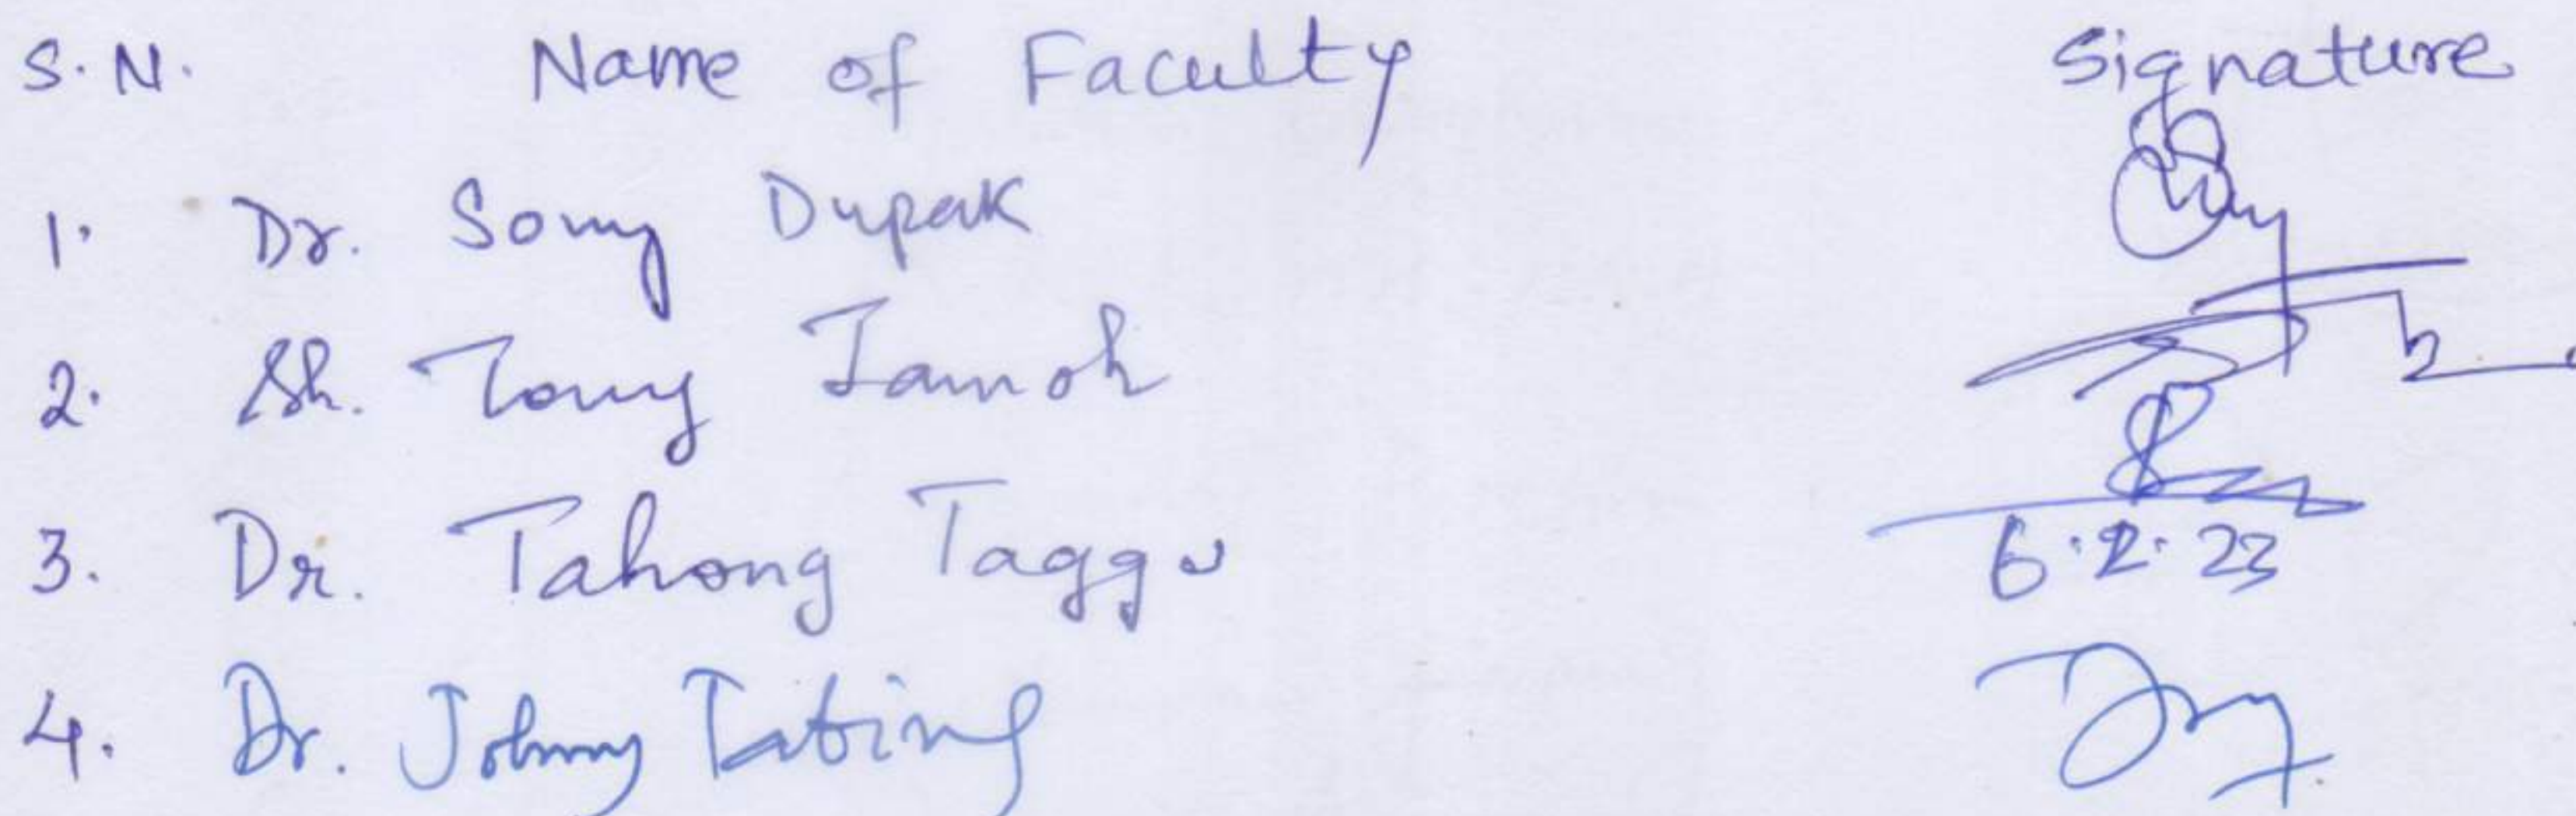 S.N. Name of Faculty Signature
1. Dr. Sony Dupak
2. Sh. Tony Jamoh
3. Dr. Tahong Taggu
6.2.23
4. Dr. Johnny Tabing